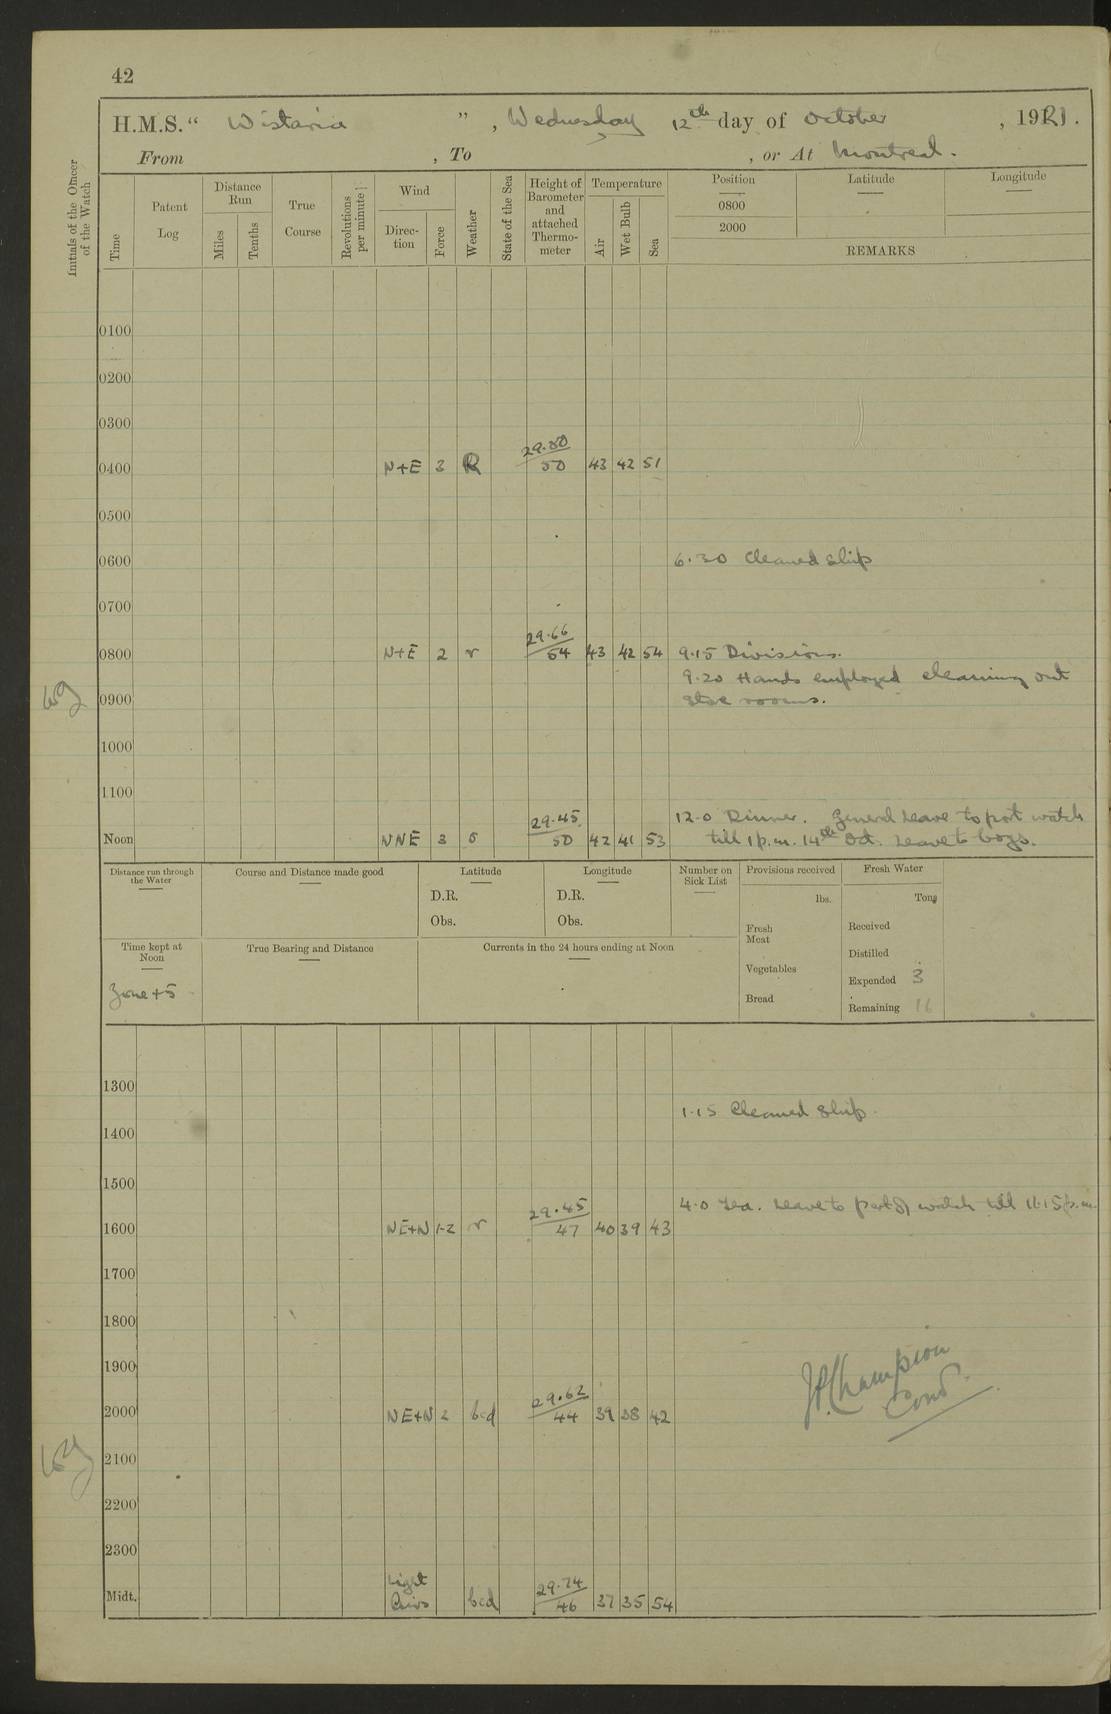 42
H.M.S. "Wistaria", Wednesday 12th day of October, 1921.
From , To , or At Montreal.
Initials of the Officer of the Watch
Time
Patent Log
Distance Run
Miles
Tenths
True Course
Revolutions per minute
Wind
Direction
Force
Weather
State of the Sea
Height of Barometer and attached Thermometer
Temperature
Air
Wet Bulb
Sea
Position Latitude Longitude
0800
2000
REMARKS
0100
0200
0300
0400 N+E 3 R 29.80/50 43 42 51
0500
0600 6.30 Cleaned ship
0700
0800 N+E 2 r 29.66/54 43 42 54 9.15 Divisions.
9.20 Hands employed cleaning out
0900 store rooms.
1000
1100
12.0 Dinner. General Leave to port watch
Noon NNE 3 o 29.45/50 42 41 53 till 1 p.m. 14th Oct. Leave to boys.
Distance run through the Water
Course and Distance made good
Latitude
D.R.
Obs.
Longitude
D.R.
Obs.
Number on Sick List
Provisions received
lbs.
Fresh Meat
Vegetables
Bread
Fresh Water
Tons
Received
Distilled
Expended 3
Remaining 16
Time kept at Noon
Zone +5
True Bearing and Distance
Currents in the 24 hours ending at Noon
1300
1.15 Cleaned ship.
1400
1500
4.0 Tea. Leave to part of watch till 11.15 p.m.
1600 NE+N 1-2 r 29.45/47 40 39 43
1700
1800
1900
J.P. Champion
2000 NE+N 2 bcd 29.62/44 39 38 42
2100
2200
2300
Midt. Light Airs bcd 29.74/46 37 35 54